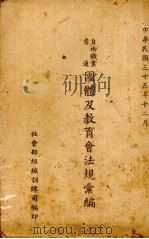 中華民國三十五年十二月
自由職業
普通
團體及教育會法規彙編
社會部組織訓練司編印